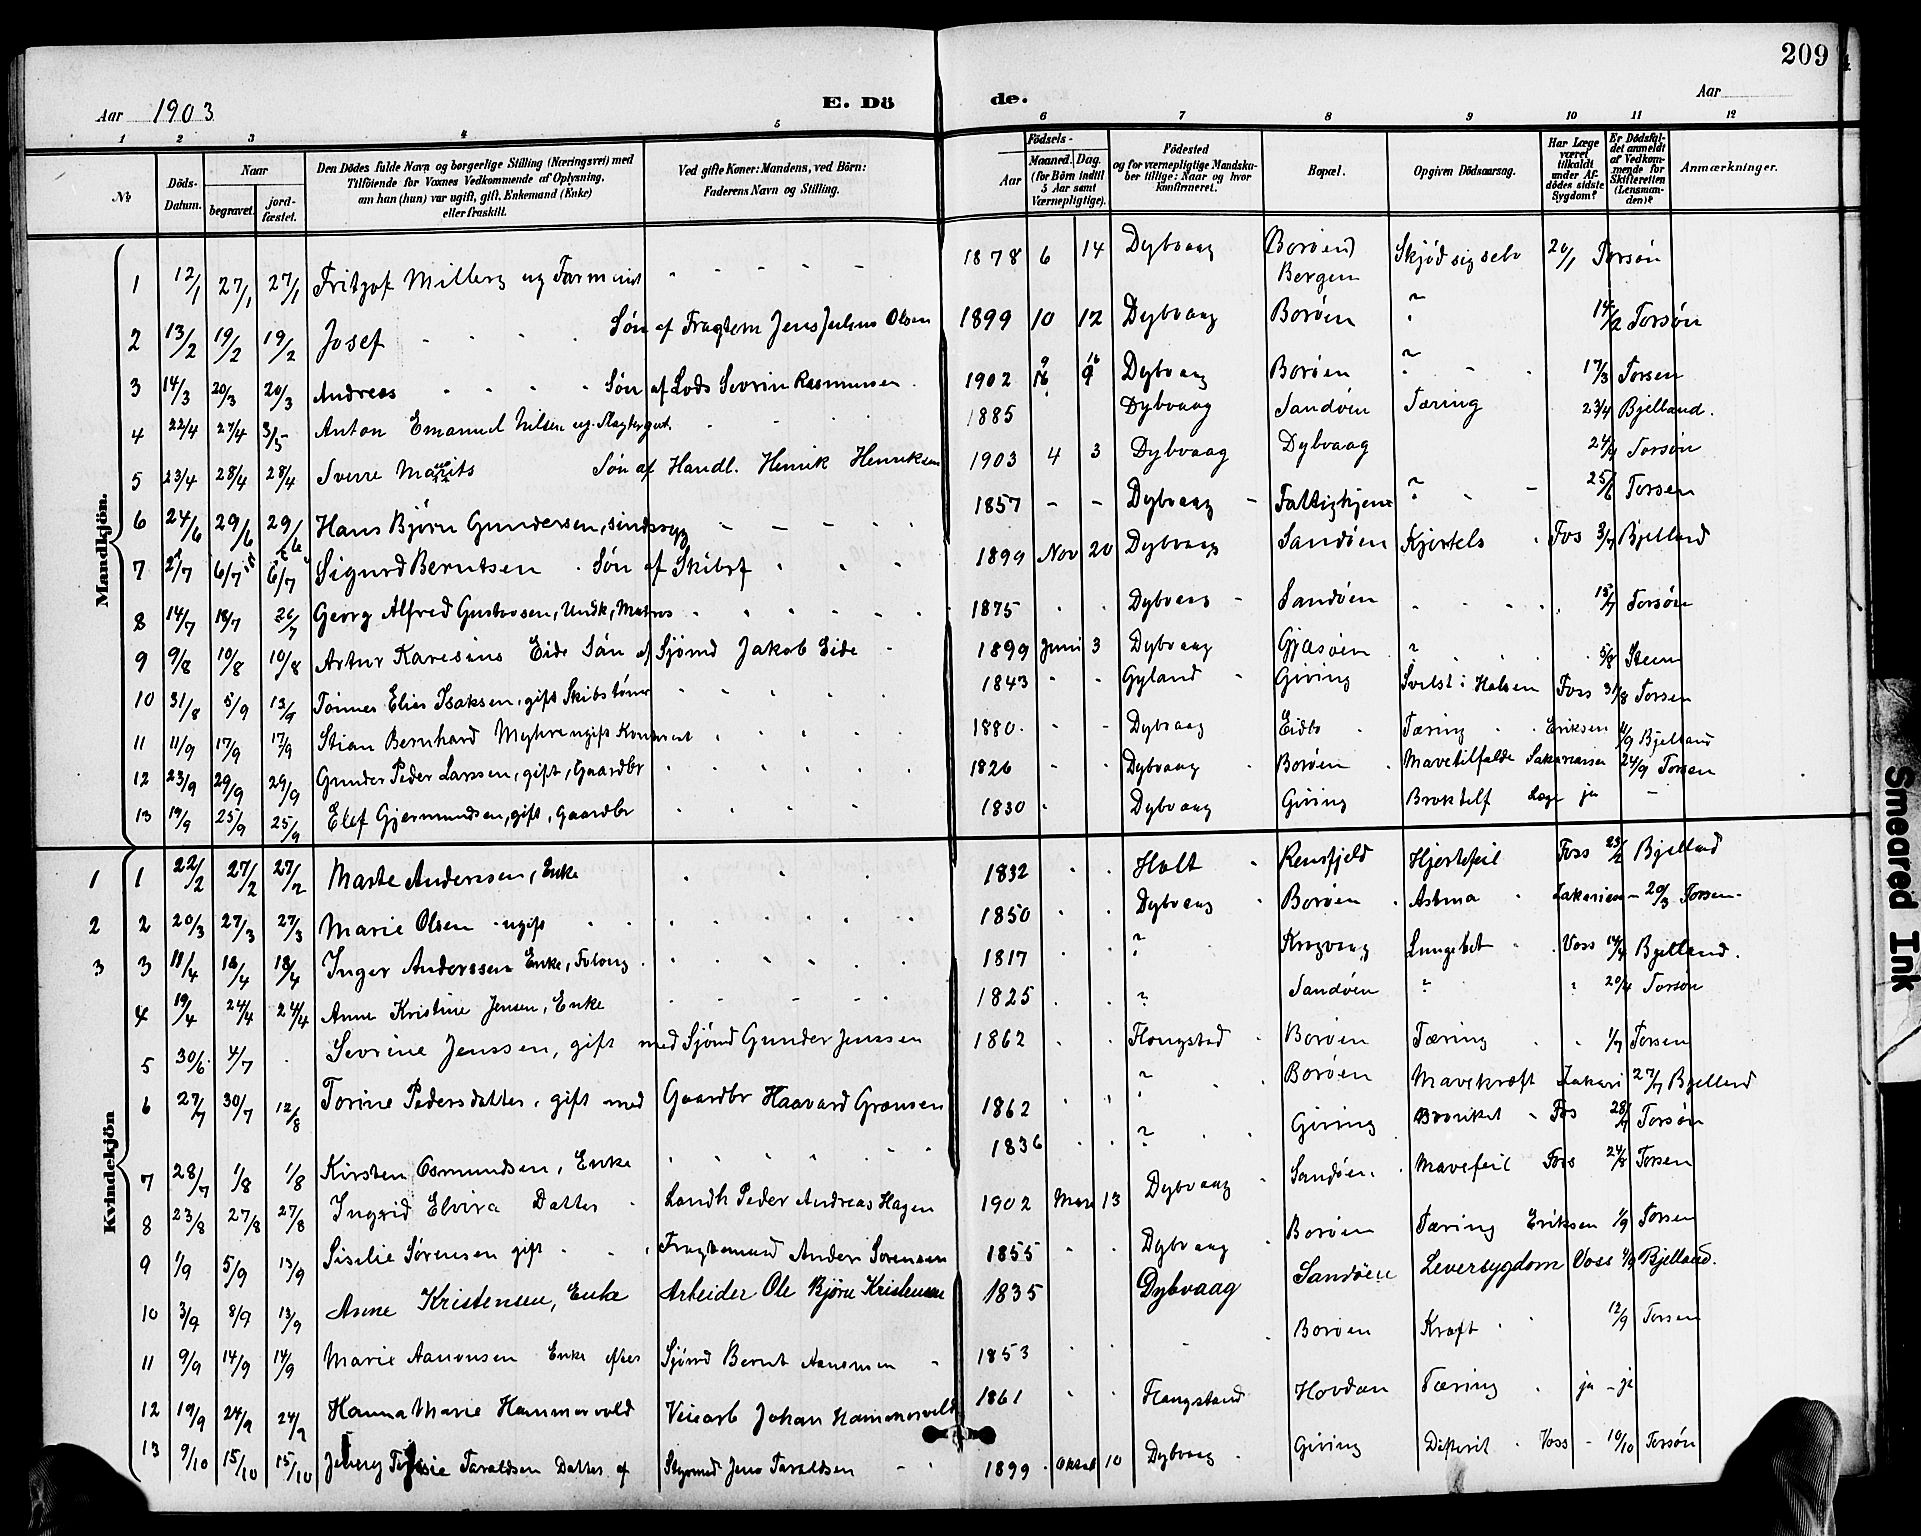 209
Aar 1903
E. Dö de.
Aar
1 2 3 4 5 6 7 8 9 10 11 12
No
Döds-Datum.
Naar
begravet.
jord-fæstet.
Den Dödes fulde Navn og borgerlige Stilling (Næringsvei) med
Tilföiende for Voxnes Vedkommende af Oplysning,
om han (hun) var ugift, gift, Enkemand (Enke)
eller fraskilt.
Ved gifte Koner: Mandens, ved Börn:
Faderens Navn og Stilling.
Födsels-
Aar
Maaned. Dag.
(for Börn indtil
5 Aar samt
Værnepligtige).
Födested
og for værnepligtige Mandska-
ber tillige: Naar og hvor
konfirmeret.
Bopæl.
Opgiven Dödsaarsag.
Har Læge
været
tilkaldt
under Af-
dödes sidste
Sygdom?
Er Dödsfal-
det anmeldt
af Vedkom-
mende for
Skifteretten
(Lensman-
den)?
Anmærkninger.
Mandkjön.
1 12/1 27/1 27/1 Fritjof 1878 6 14 Dybvaag (Borøen) Bergen Skjød sig selv 20/1 Torsøn
2 13/2 19/2 19/2 Josef Søn af Fragtem Jens Julius Olsen 1899 10 12 Dybvaag Borøen ? 14/2 Torsøn
3 14/3 20/3 20/3 Andreas Søn af Lods Sevrin Rasmussen 1902 Dybvaag Borøen ? 17/3 Torsen
4 22/4 27/4 3/5 Anton Emanuel Nilsen ug. 1885 Dybvaag Sandøen Tæring 23/4 Bjelland.
5 23/4 28/4 28/4 Sverre Søn af Handl. Henrik Henriksen 1903 4 3 Dybvaag Dybvaag 24/4 Torsøn
6 24/6 29/6 29/6 Hans Bjørn Gundersen, sindssyg 1857 - - Dybvaag ? 25/6 Torsen
7 6/7 6/7 Sigurd Berntsen Søn af Skibsf 1899 Nov 20 Dybvaag Sandøen Kjertels Fos 3/7 Bjelland
8 14/7 18/7 26/7 Georg Alfred Gustavsen, Unsk, Matros 1875 Dybvaag Sandøen 15/7 Torsøn
9 9/8 10/8 10/8 Artur Karesius Eide Søn af Sjømd Jakob Eide 1899 Juni 3 Dybvaag Gjæsøen ? 5/8 Steen
10 31/8 5/9 13/9 Tønnes Elias Isaksen, gift Skibstømr 1843 Gyland Giving Svilst i Halsen Foss 31/8 Torsen
11 11/9 17/9 17/9 Stian Bernhard Myhre ugift 1880 Dybvaag Eidbo Tæring Eriksen Bjelland
12 23/9 29/9 29/9 Gunder Peder Larssen, gift, Gaardbr 1826 Dybvaag Borøen Mavetilfælde 24/9 Torsen
13 19/9 25/9 25/9 Elef Gjermundsen, gift, Gaardbr 1830 Dybvaag Giving Læge ja -
Kvindekjön
1 1 22/2 27/2 27/2 Marte Anderssen, Enke 1832 Holt Rensfjeld Hjertefeil Foss 23/2 Bjelland
2 2 20/3 27/3 27/3 Marie Olsen ugift 1850 Dybvaag Borøen Astma Zakarien - 20/3 Torsen
3 3 11/4 18/4 18/4 Inger Anderssen Enke, 1817 ? Krogvaag Lungebet Voss 14/4 Bjelland.
4 19/4 24/4 24/4 Anne Kristine Jensen, Enke 1825 ? Sandøen ? 20/4 Torsøn
5 30/6 4/7 Sevrine Jenssen, gift med Sjømd Gunder Jenssen 1862 Flangstad Borøen Tæring 1/7 Torsen
6 27/7 30/7 12/8 Torine Pedersdatter, gift med Gaardbr Haavard Grønsen 1862 ? Borøen Mavekræft Zakari 27/7 Bjelland
7 28/7 1/8 1/8 Kirsten Osmundsen, Enke 1836 ? Giving Fos 28/7 Torsøn
8 23/8 27/8 27/8 Ingrid Elvira Datter Landh Peder Andreas Hagen 1902 Mars 13 Dybvaag Sandøen Mavefeil Fos 24/8 Torsen
9 1/9 5/9 13/9 Siselie Sørensen gift Fragtemand Anders Sørensen 1855 Dybvaag Borøen Tæring Eriksen 1/9 Torsen
10 3/9 8/9 13/9 Asine Kristensen, Enke Arbeider Ole Bjørn Kristensen 1835 Dybvaag Sandøen Leversygdom Voss 4/9 Bjelland.
11 9/9 14/9 14/9 Marie Aanonsen Enke efter Sjømd Bernt Aanonsen 1853 Borøen Kræft 12/9 Torsen
12 19/9 24/9 24/9 Hanna Marie Hammersvold Veiearb Johan Hammersvold 1861 Flangstand Hovdan Tæring ja - ja
13 9/10 15/10 15/10 Jenny Taraldsen Datter af Styrmd Jens Taraldsen 1899 Oktob 10 Dybvaag Giving Difterit Voss - 10/10 Torsøn
Smeared Ink